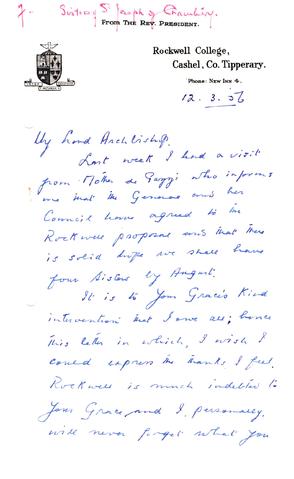 Sisters of S. Joseph of Chambéry.
FROM THE REV. PRESIDENT.
Rockwell College,
Cashel, Co. Tipperary.
Phone: New Inn 4.
12. 3. 56
My Lord Archbishop,
Last week I had a visit
from Mother de who informs
me that the General and her
Council have agreed to the
Rockwell proposal and that there
is solid hope we shall have
four Sisters by August.
It is to Your Grace's kind
intervention that I owe all; hence
this letter in which, I wish I
could express the thanks I feel.
Rockwell is much indebted to
Your Grace, and I, personally,
will never forget what you